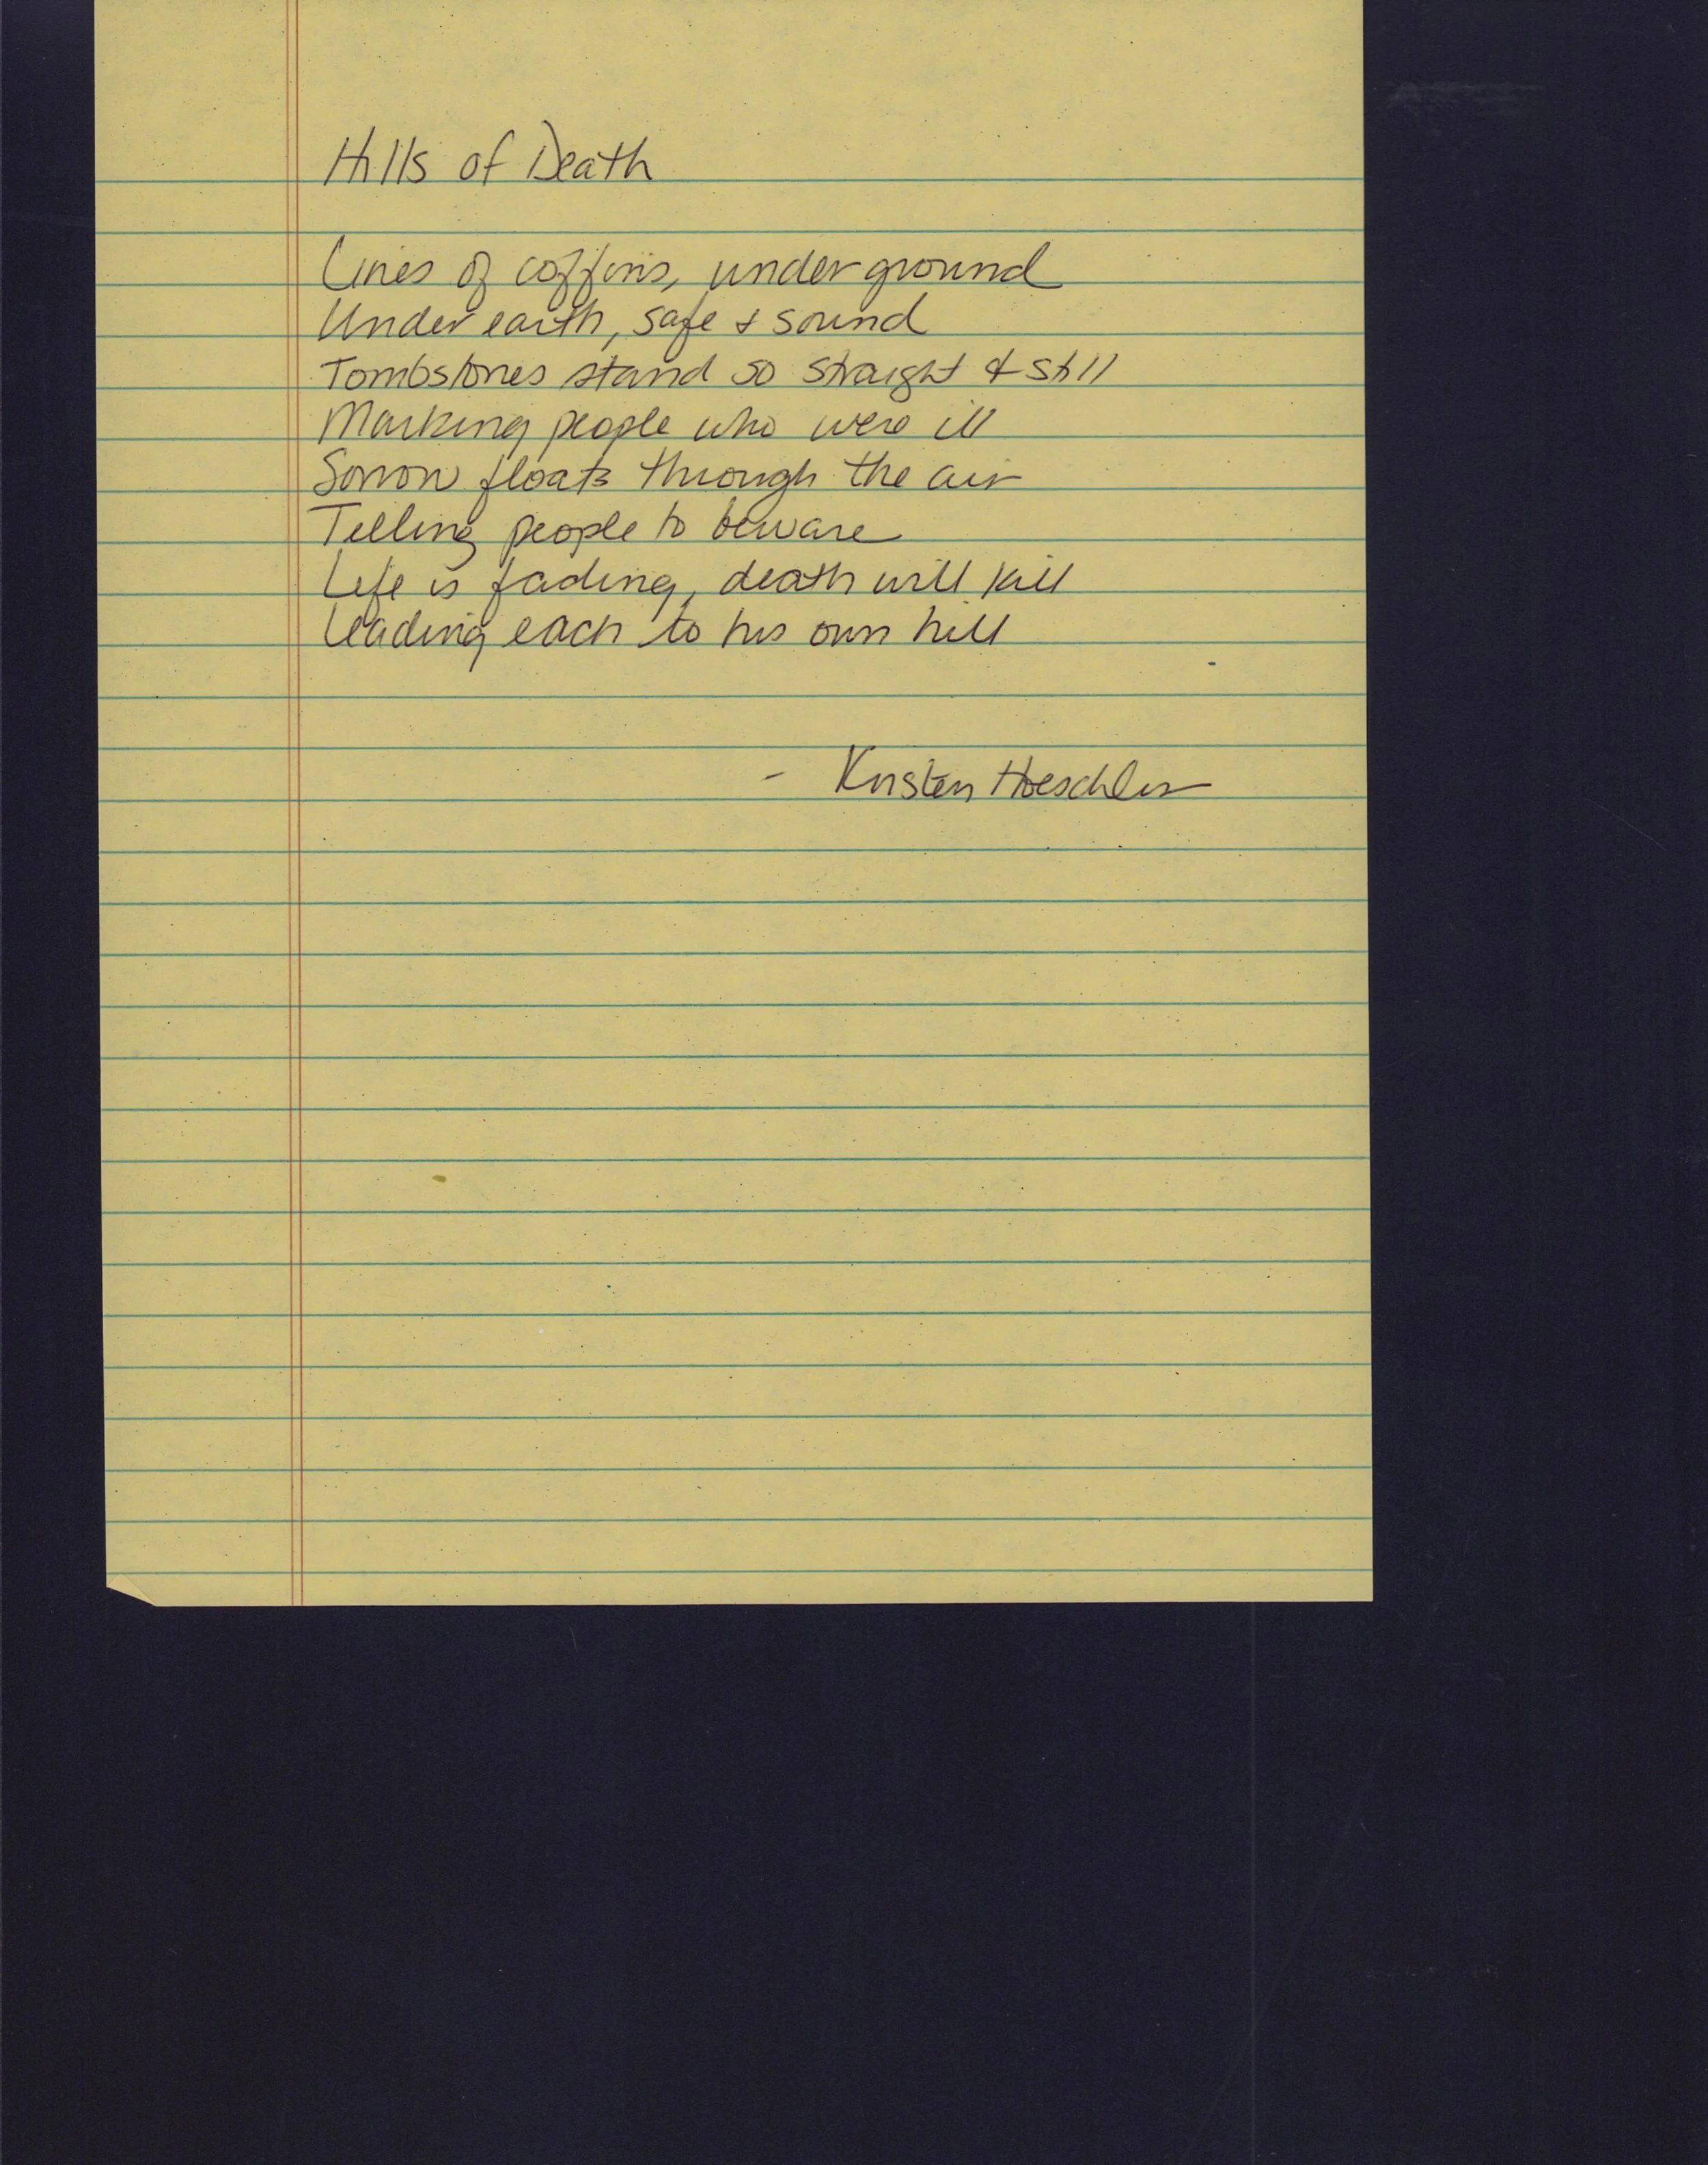 Hills of Death
Lines of coffins, underground
Under earth, safe & sound
Tombstones stand so straight & still
Marking people who were ill
Sorrow floats through the air
Telling people to beware
Life is fading, death will kill
Leading each to his own hill
- Kirsten Hoeschler